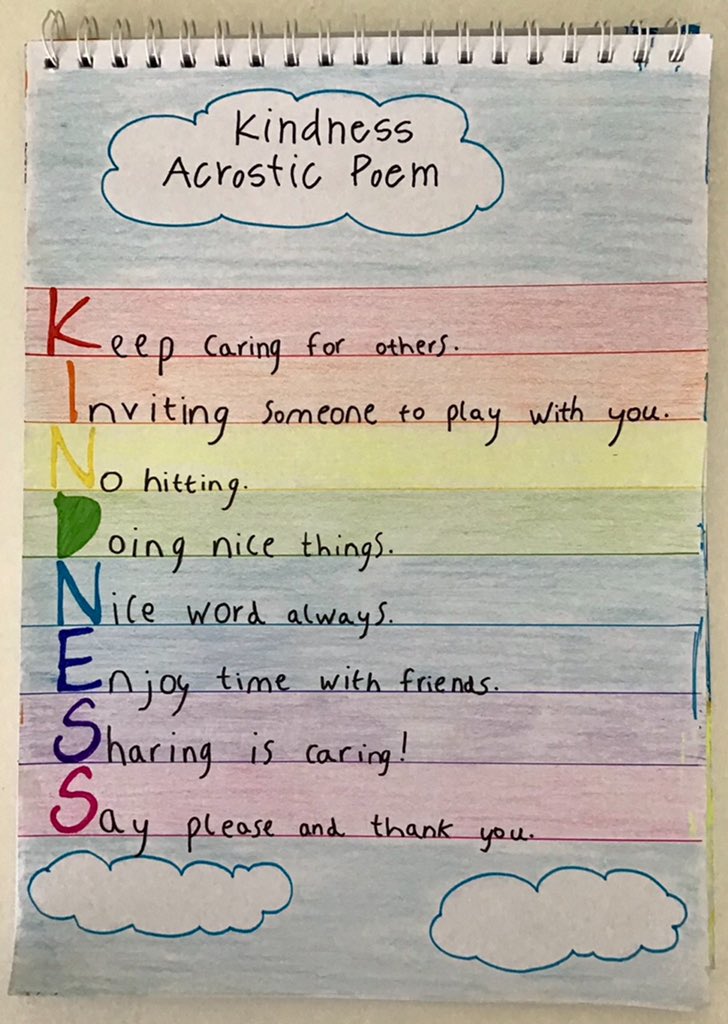 Kindness
Acrostic Poem
Keep caring for others.
Inviting someone to play with you.
No hitting.
Doing nice things.
Nice word always.
Enjoy time with friends.
Sharing is caring!
Say please and thank you.